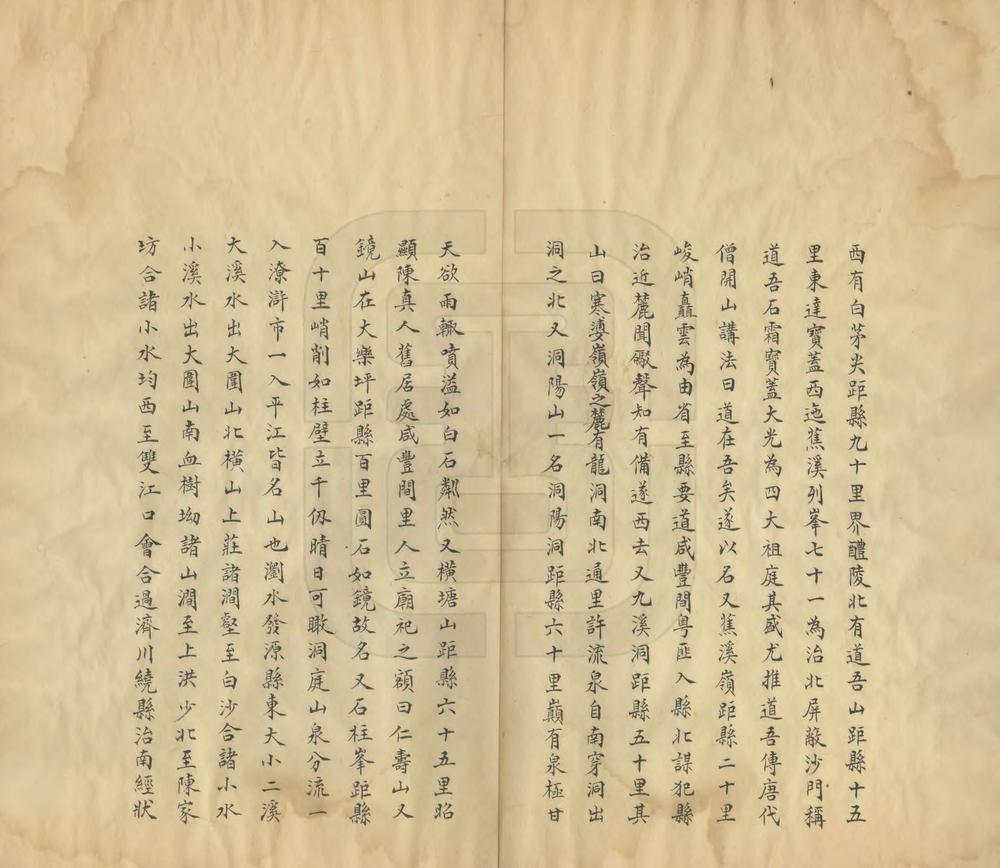 西有白茅尖距縣九十里界醴陵北有道吾山距縣十五
里東達寶蓋西迤蕉溪列峯七十一為治北屏蔽沙門稱
道吾石霜寶蓋大光為四大祖庭其盛尤推道吾傳唐代
僧開山講法曰道在吾矣遂以名又蕉溪嶺距縣二十里
峻峭矗雲為由省至縣要道咸豐間粵匪入縣北謀犯縣
治近麓聞礮聲知有備遂西去又九溪洞距縣五十里其
山曰寒婆嶺嶺之麓有龍洞南北通里許流泉自南穿洞出
洞之北又洞陽山一名洞陽洞距縣六十里巔有泉極甘
天欲雨輒噴溢如白石粼然又橫塘山距縣六十五里昭
顯陳真人舊居處咸豐間里人立廟祀之額曰仁壽山又
鏡山在大樂坪距縣百里圓石如鏡故名又石柱峯距縣
百十里峭削如柱壁立千仭晴日可瞰洞庭山泉分流一
入潦滸市一入平江皆名山也瀏水發源縣東大小二溪
大溪水出大圍山北橫山上莊諸澗壑至白沙合諸小水
小溪水出大圍山南血樹坳諸山澗至上洪少北至陳家
坊合諸小水均西至雙江口會合過濟川繞縣治南經狀